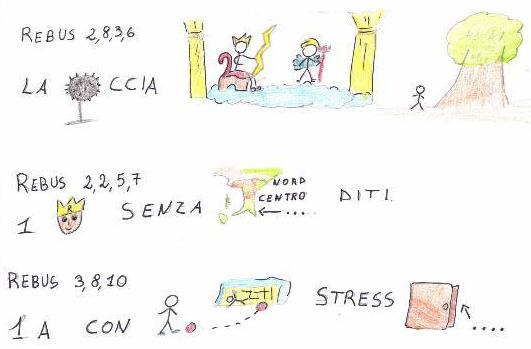 REBUS 2,8,3,6
LA CCIA
REBUS 2,2,5,7
1 R SENZA NORD CENTRO ←.... DITI
REBUS 3,8,10
1 A CON STRESS ....